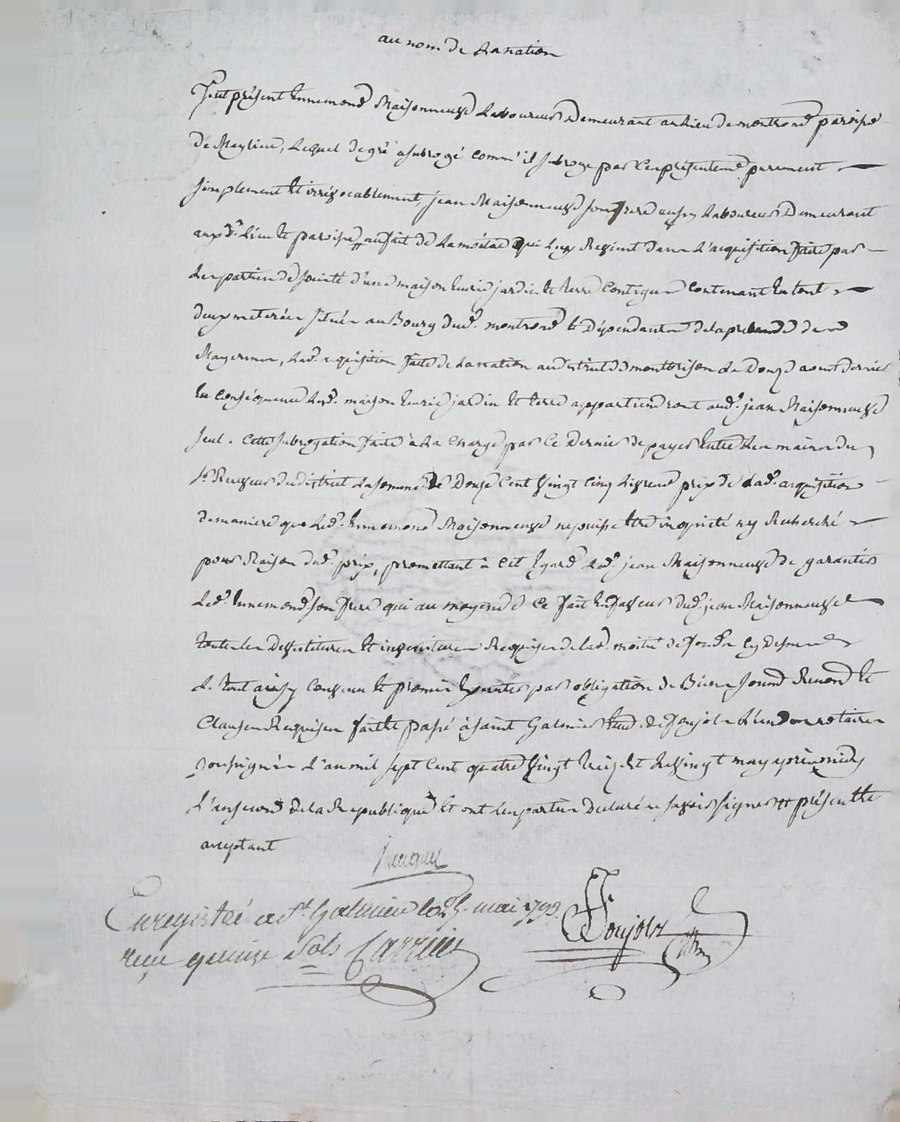 au nom de la nation
fut présent Ennemond Maisonneuve Laboureur demeurant au lieu de montrond paroisse
de Meylieu, Lequel de gré a subrogé comm'il subroge par Ces présentes purement
simplement et irrévocablement, jean Maisonneuve son frere aussy Laboureur Demeurant
auxd. Lieu et paroisse, au fait de La moitié qui Luy Revient dans L'acquisition faite par
Les parties de société d'une maison Ecurie jardin et terre Contigus Contenant en tout
deux meterées située au Bourg dud. montrond et Dépendantes de la prebande de
Lad. acquisition faite de La nation au district de montbrison Le Douze aoust dernier
En Conséquence Lesd. maison Ecurie jardin Et terre appartiendront aud. jean Maisonneuve
seul. Cette subrogation faite à La Charge par Ce Dernier de payer Entre Les mains du
Sr Receveur du district La somme de Douze Cent Vingt Cinq Livres prix de Lad. acquisition
de maniere que Led. Ennemond Maisonneuve ne puisse Etre inquiété ny Recherché
pour Raison dud. prix, promettant à Cet Egard Led. jean Maisonneuve de garantir
Led. Ennemond son frere qui au moyen de Ce fait En faveur dud. jean Maisonneuve
toutes Les Devestitures Et investitures Requises de lad. moitié de fonds Cy dessus
Le tout ainsy Convenu Et promis par obligation de Biens soumis Renoncé Et
Clauses Requises fait Et passé à saint Galmier Etude de Poujol L'un des notaires
soussignés L'an mil sept Cent quatre Vingt treize Et Le Vingt may après midy
L'an second de la Republique Et ont Les parties déclaré ne savoir signer
acceptant
Enregistré a St Galmier le 25. mai 1793.
reçu quinze sols
Poujol